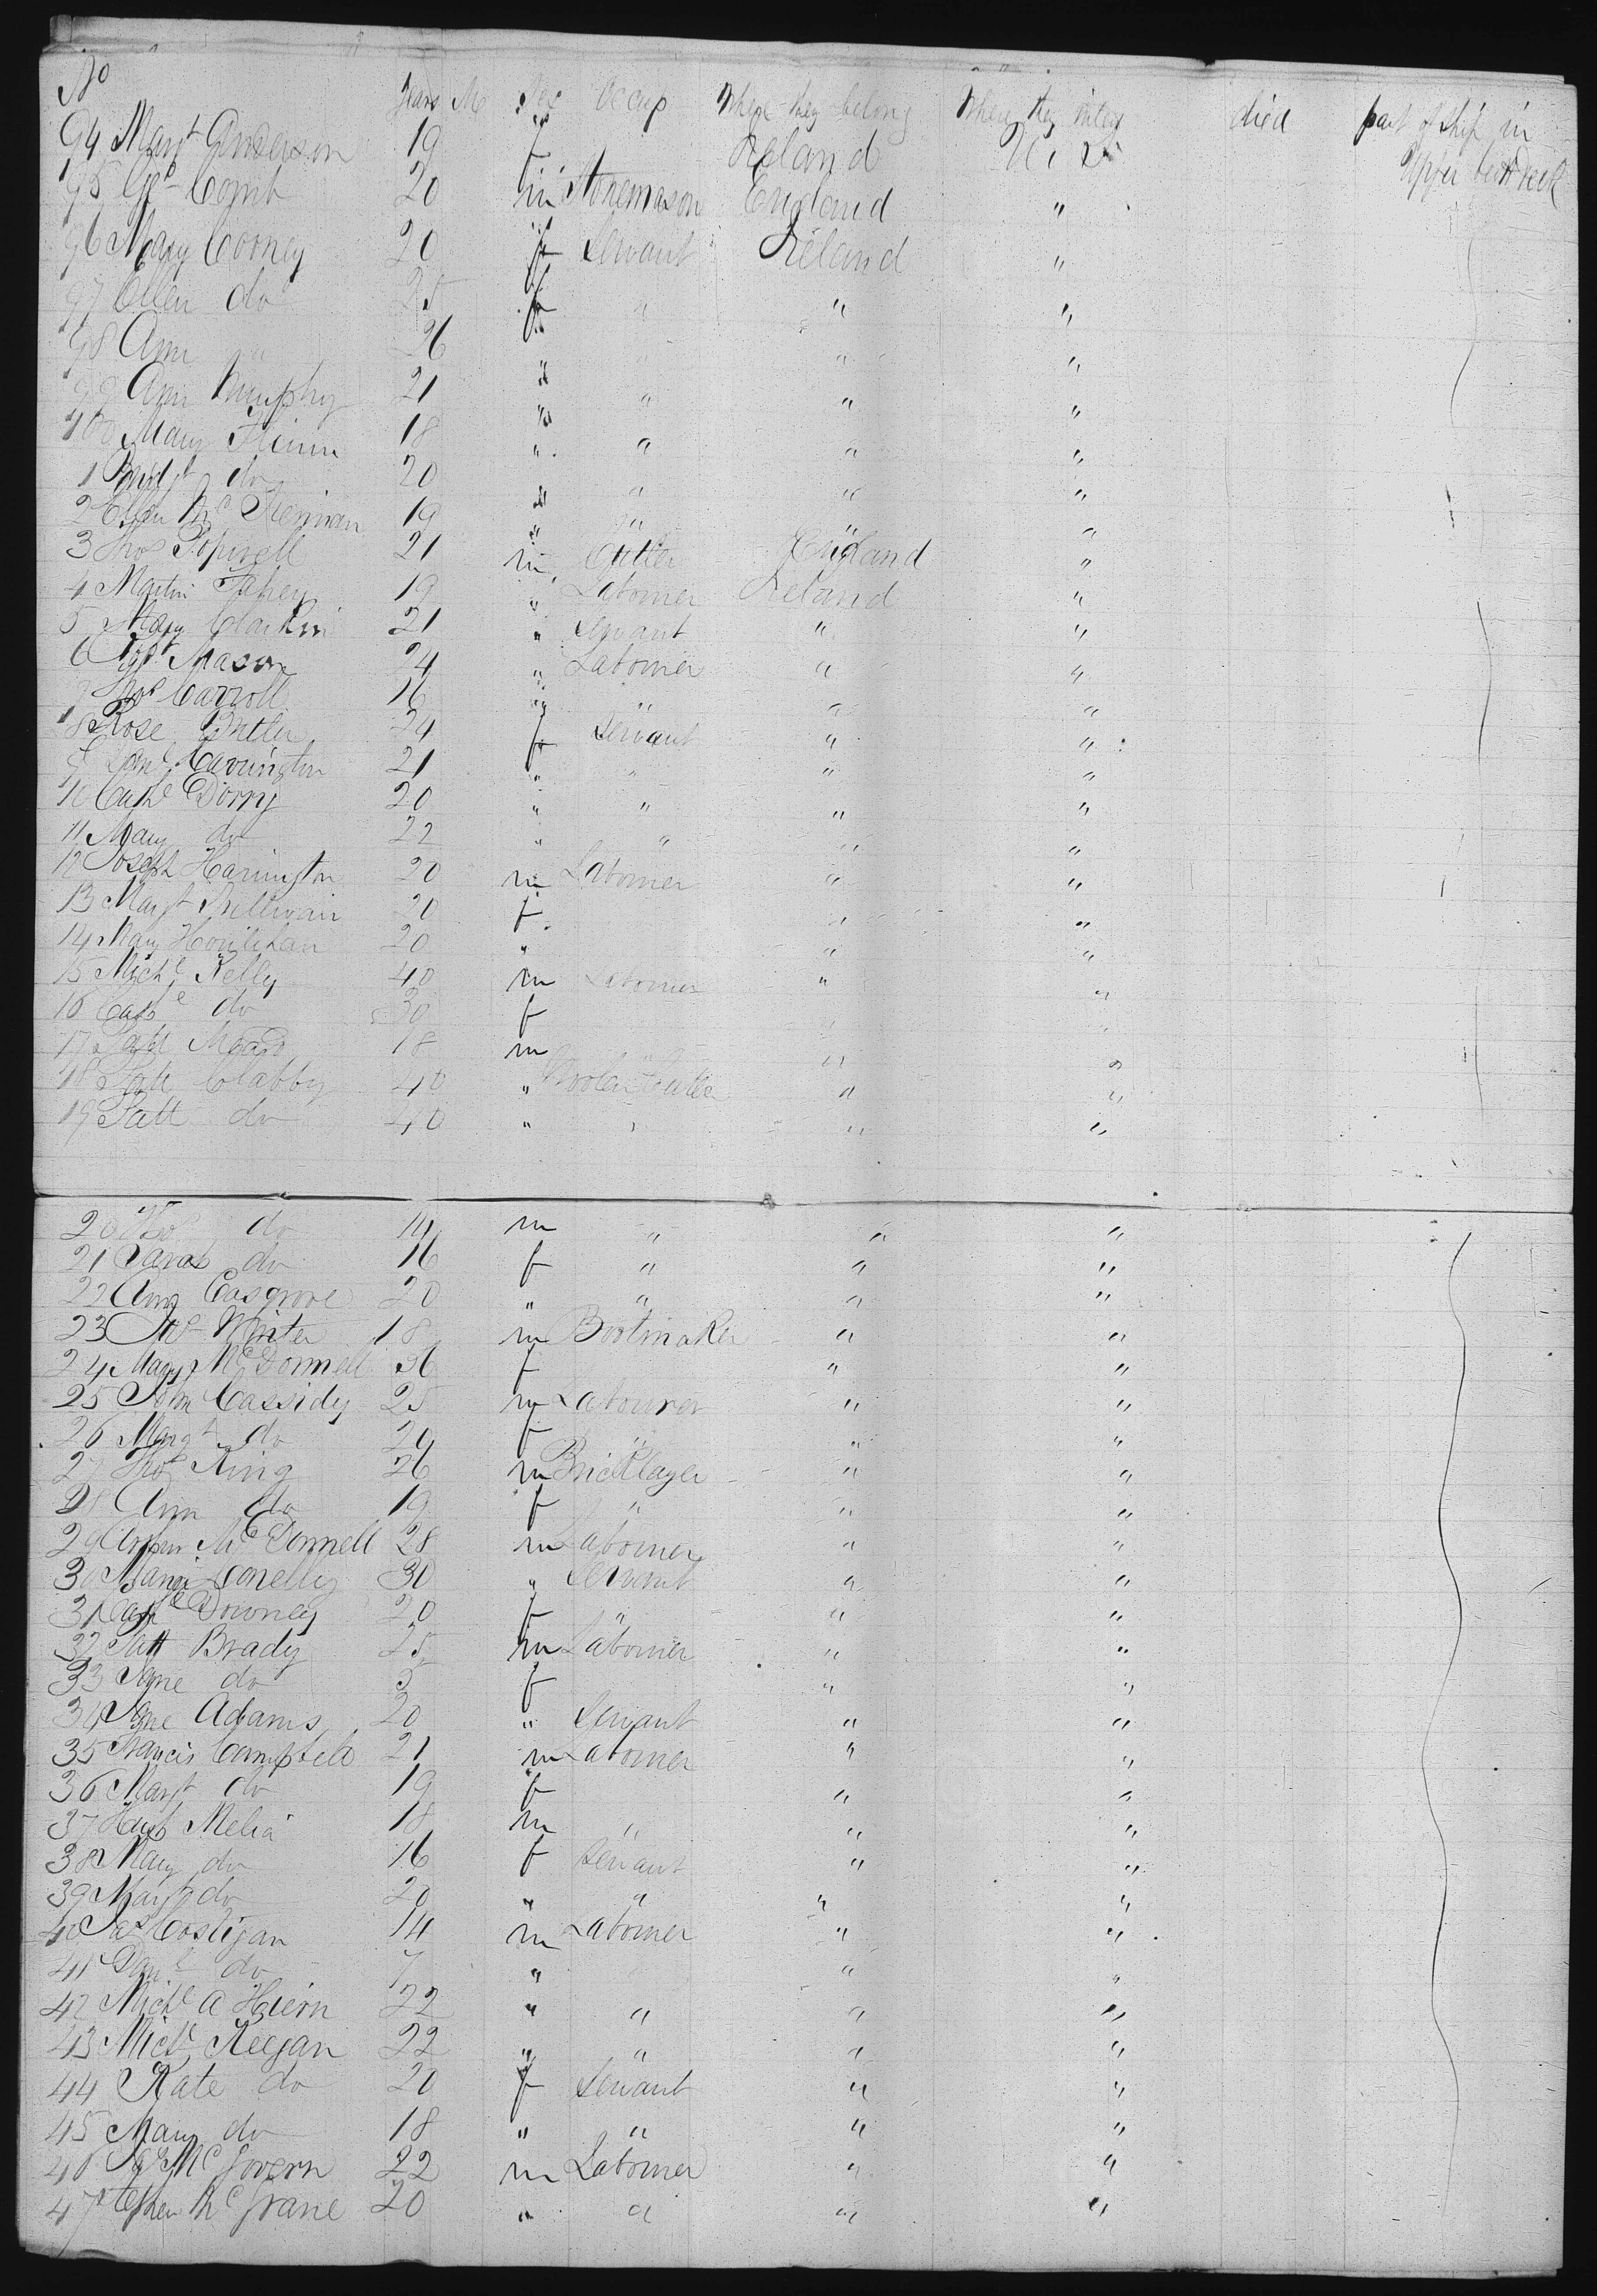 No Years M Sex Occup Where they belong Where they intend died part of ship in
94 Margt Anderson 19 f Ireland U. S. Upper betw Deck
95 Geo Comb 20 m Stonemason England "
96 Mary Cooney 20 f Servant Ireland "
97 Ellen do 25 f " " "
98 Ann " 26 " " " "
99 Ann Murphy 21 " " " "
400 Mary 18 " " " "
1 Bridgt do 20 " " " "
2 Ellen Mc Kiernan 19 " " " "
3 Thos 21 m England "
4 Martin Fahey 19 " Labourer Ireland "
5 Mary Clarkin 21 " Servant " "
6 Mason 24 " Labourer " "
7 Thos Carroll 16 " " " "
8 Rose Butler 24 f Servant " "
9 21 " " " "
10 Cathe Dorry 20 " " " "
11 Mary do 22 " " " "
12 Joseph Harrington 20 m Labourer " "
13 Margt Sullivan 20 f " "
14 Mary Hourihan 20 " " "
15 Michl Kelly 40 m Labourer " "
16 Cathe do 30 f " "
17 18 m " "
18 Patt Clabby 40 " " "
19 Patt do 40 " " " "
20 Thos do 14 m " " "
21 Sarah do 16 f " " "
22 Ann Cosgrove 20 " " " "
23 Winter 18 m Bootmaker " "
24 Mary McDonnell 36 f " "
25 John Cassidy 25 m Labourer " "
26 Margt do 24 f " " "
27 Thos King 26 m Bricklayer " "
28 Ann do 19 f " " "
29 McDonnell 28 m Labourer " "
30 Maria Conelly 30 " Servant " "
31 Cathe Downey 20 f " " "
32 Patt Brady 25 m Labourer " "
33 Jane do 5 f " "
34 Jane Adams 20 " Servant " "
35 Francis Campbell 21 m Labourer " "
36 Margt do 19 f " "
37 Melia 18 m " " "
38 Mary do 16 f Servant " "
39 Margt do 20 " " " "
40 Jas Costigan 14 m Labourer " "
41 Danl do 7 " " "
42 Michl A Hiern 22 " " " "
43 Michl Keegan 22 " " " "
44 Kate do 20 f Servant " "
45 Mary do 18 " " " "
46 Jas McGovern 22 m Labourer " "
47 Stephen McGrane 20 " " " "